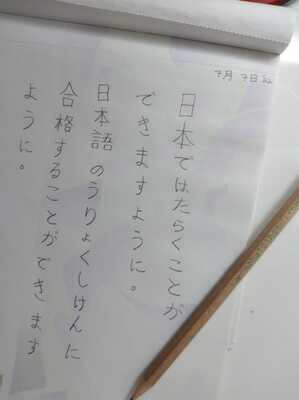 7月7日
日本ではたらくことが
できますように。
日本語のうりょくしけんに
合格することができます
ように。